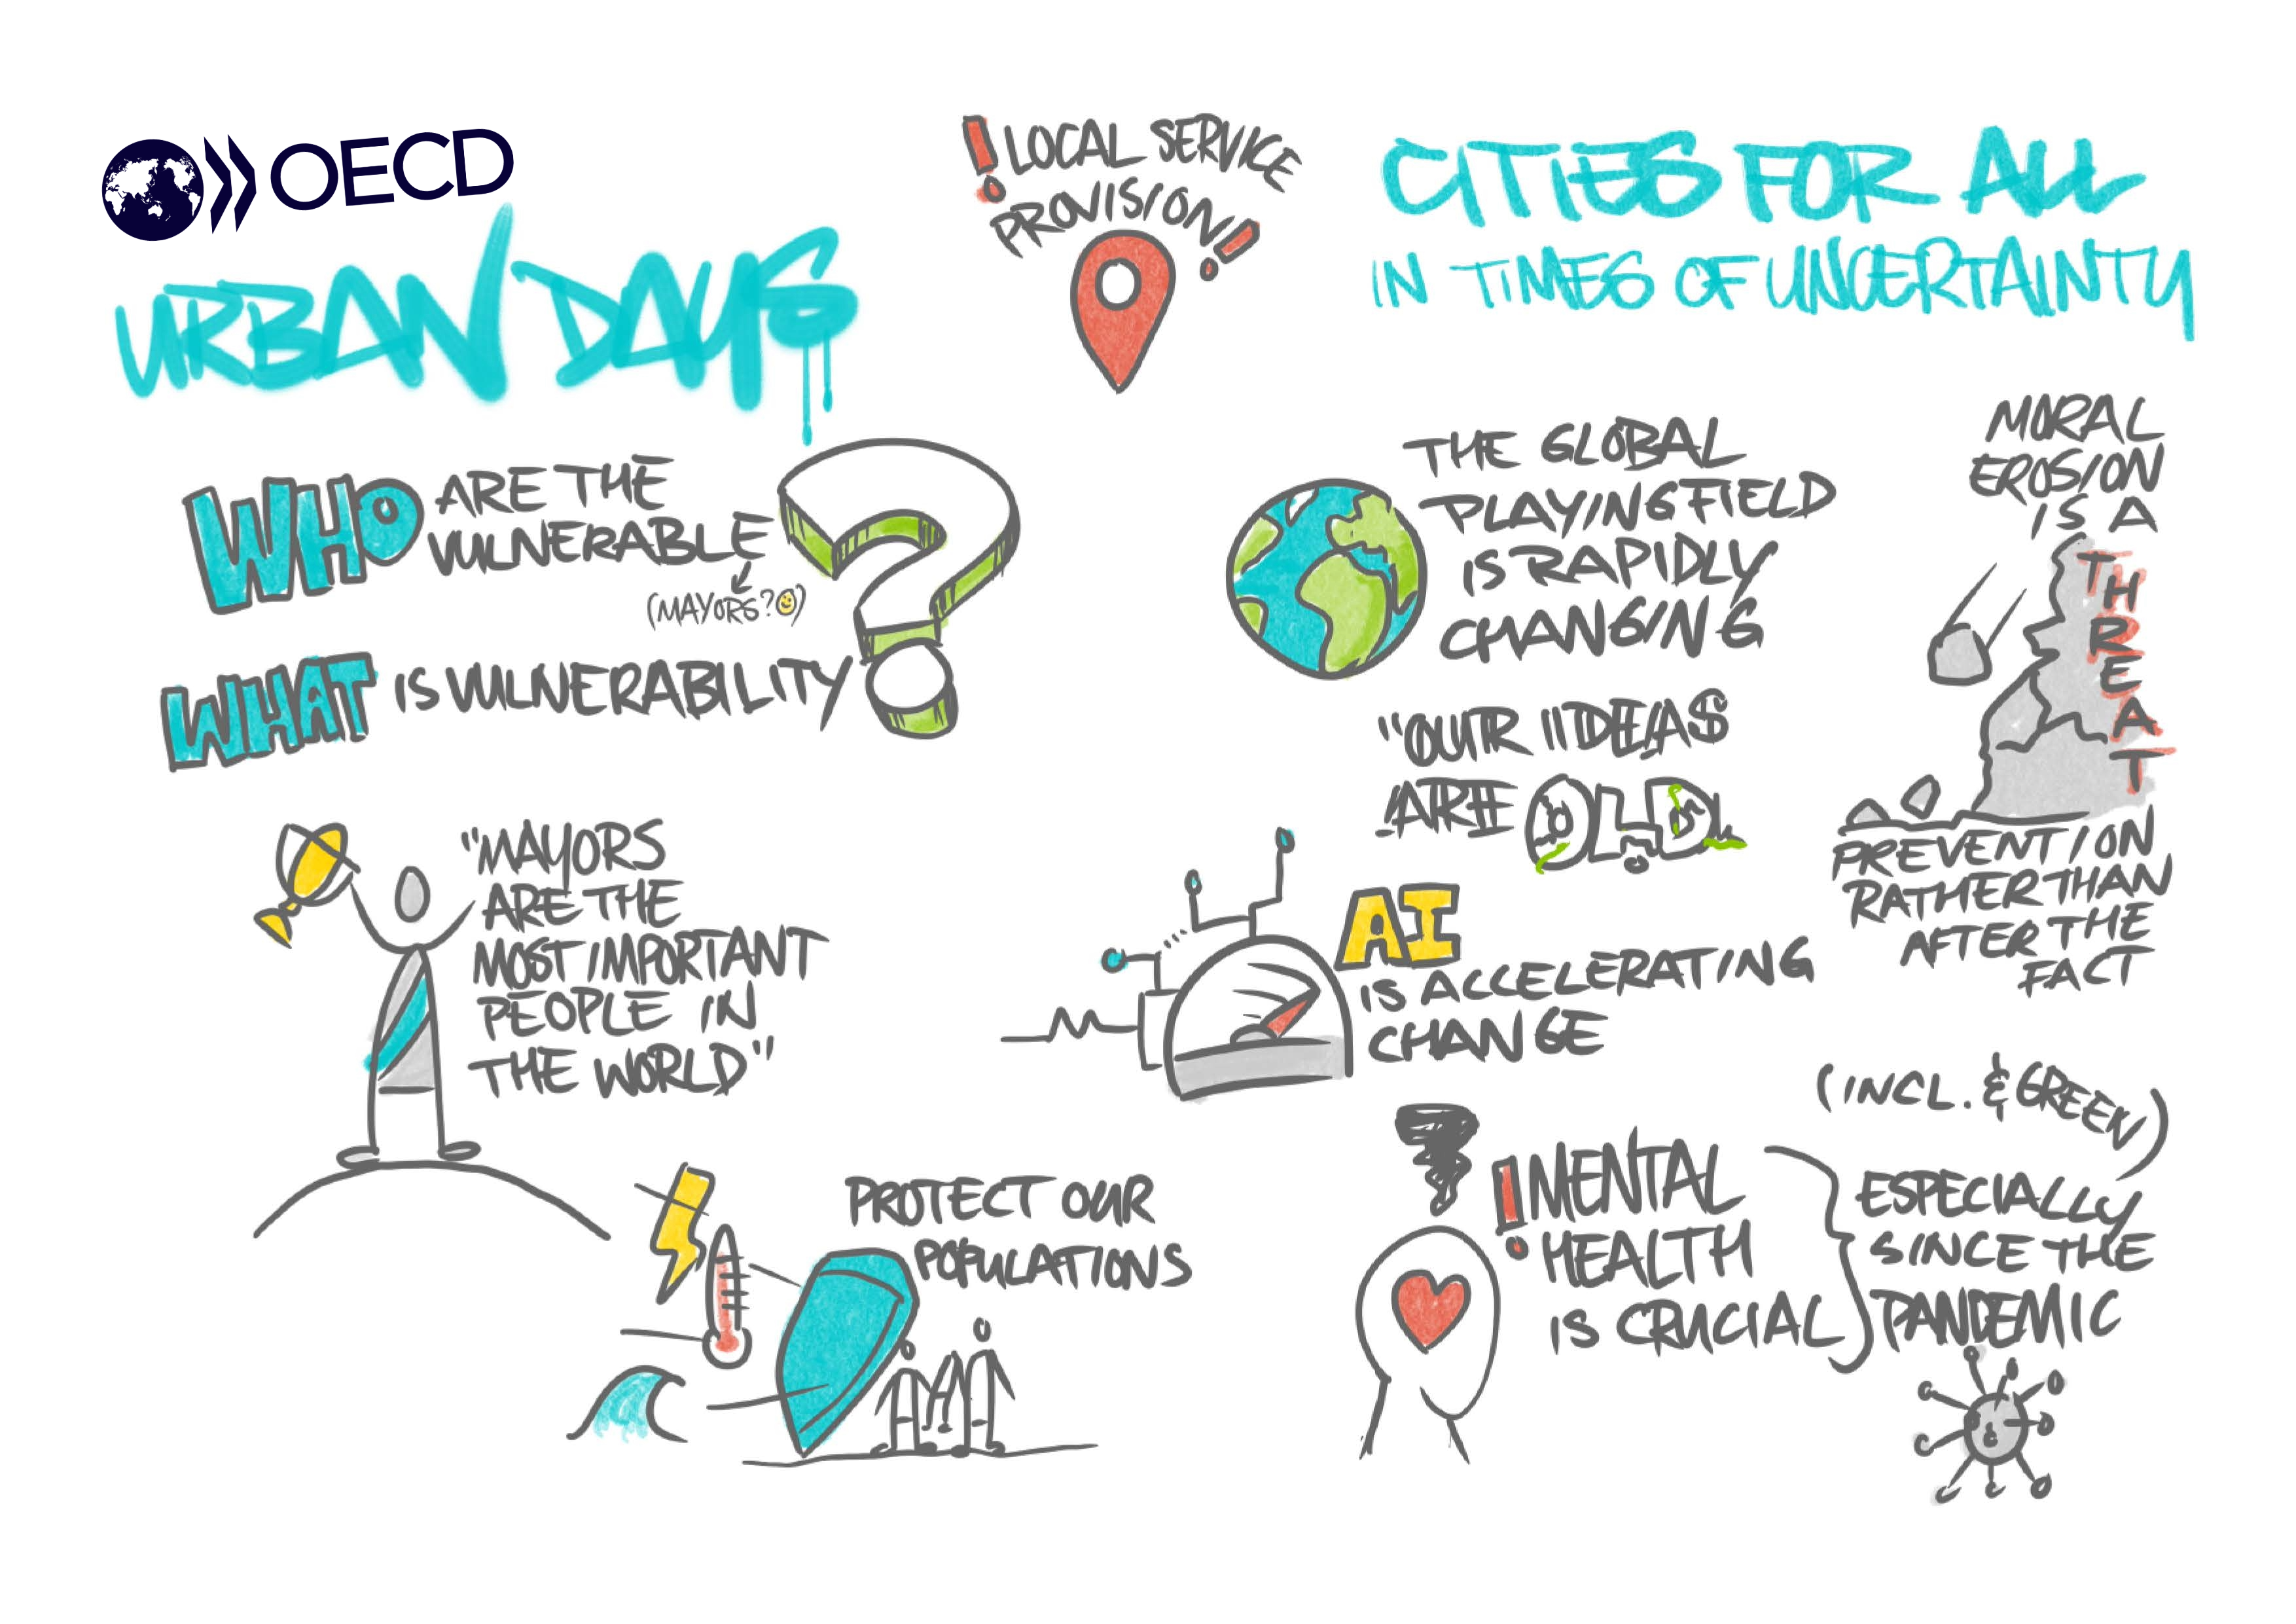 OECD
URBAN DAYS
! LOCAL SERVICE
PROVISION!
CITIES FOR ALL
IN TIMES OF UNCERTAINTY
WHO ARE THE
VULNERABLE
(MAYORS?☺)
WHAT IS VULNERABILITY
?
THE GLOBAL
PLAYINGFIELD
IS RAPIDLY
CHANGING
MORAL
EROSION
IS A
THREAT
PREVENTION
RATHER THAN
AFTER THE
FACT
"OUR IDEAS
ARE OLD
"MAYORS
ARE THE
MOST IMPORTANT
PEOPLE IN
THE WORLD"
AI
IS ACCELERATING
CHANGE
PROTECT OUR
POPULATIONS
! MENTAL
HEALTH
IS CRUCIAL
(INCL. & GREEN)
ESPECIALLY
SINCE THE
PANDEMIC